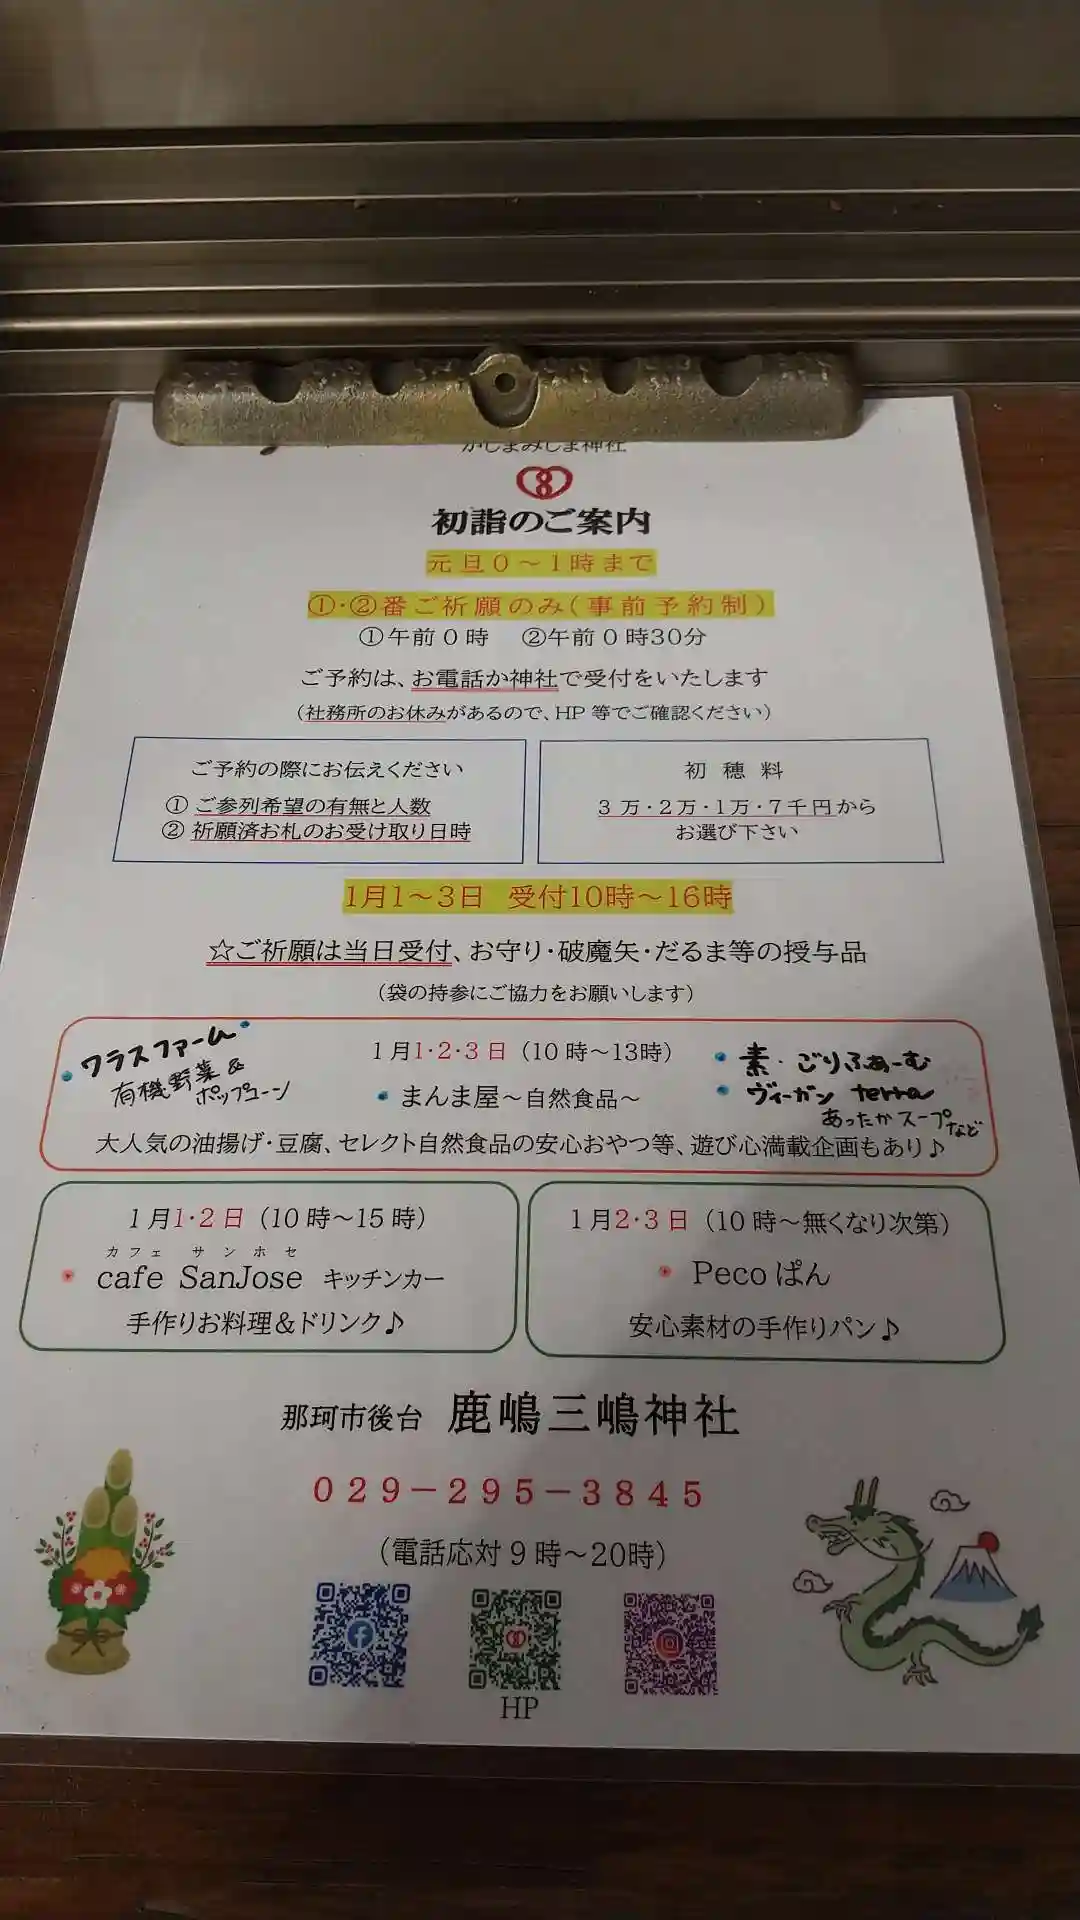 かしまみしま神社
初詣のご案内
元旦0～1時まで
①・②番ご祈願のみ(事前予約制)
①午前0時 ②午前0時30分
ご予約は、お電話か神社で受付をいたします
(社務所のお休みがあるので、HP等でご確認ください)
ご予約の際にお伝えください
① ご参列希望の有無と人数
② 祈願済お札のお受け取り日時
初穂料
3万・2万・1万・7千円から
お選び下さい
1月1～3日 受付10時～16時
☆ご祈願は当日受付、お守り・破魔矢・だるま等の授与品
(袋の持参にご協力をお願いします)
ワラスファーム
有機野菜&
ポップコーン
1月1・2・3日(10時～13時)
・まんま屋～自然食品～
・素・ごりふぁーむ
・ヴィーガン terra
あったかスープなど
大人気の油揚げ・豆腐、セレクト自然食品の安心おやつ等、遊び心満載企画もあり♪
1月1・2日(10時～15時)
カフェ サンホセ
cafe SanJose キッチンカー
手作りお料理&ドリンク♪
1月2・3日(10時～無くなり次第)
Pecoぱん
安心素材の手作りパン♪
那珂市後台 鹿嶋三嶋神社
029-295-3845
(電話応対9時～20時)
HP